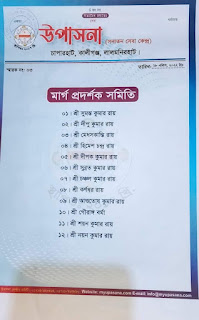 উপাসনা
(সনাতন সেবা কেন্দ্র)
চাপারহাট, কালীগঞ্জ, লালমনিরহাট।
স্মারক নং: ০৩
তারিখ:
মার্গ প্রদর্শক সমিতি
০১। শ্রী সুবল কুমার রায়
০২। শ্রী দীপু কুমার রায়
০৩। শ্রী মেঘলকান্তি রায়
০৪। শ্রী হিমেশ চন্দ্র রায়
০৫। শ্রী দীপক কুমার রায়
০৬। শ্রী সুব্রত কুমার রায়
০৭। শ্রী চঞ্চল কুমার রায়
০৮। শ্রী কর্ণধর রায়
০৯। শ্রী আশুতোষ কুমার রায়
১০। শ্রী গৌরাঙ্গ বর্মা
১১। শ্রী শয়ন কুমার রায়
১২। শ্রী নয়ন কুমার রায়
Website: www.myupasana.com E-mail: info@myupasana.com